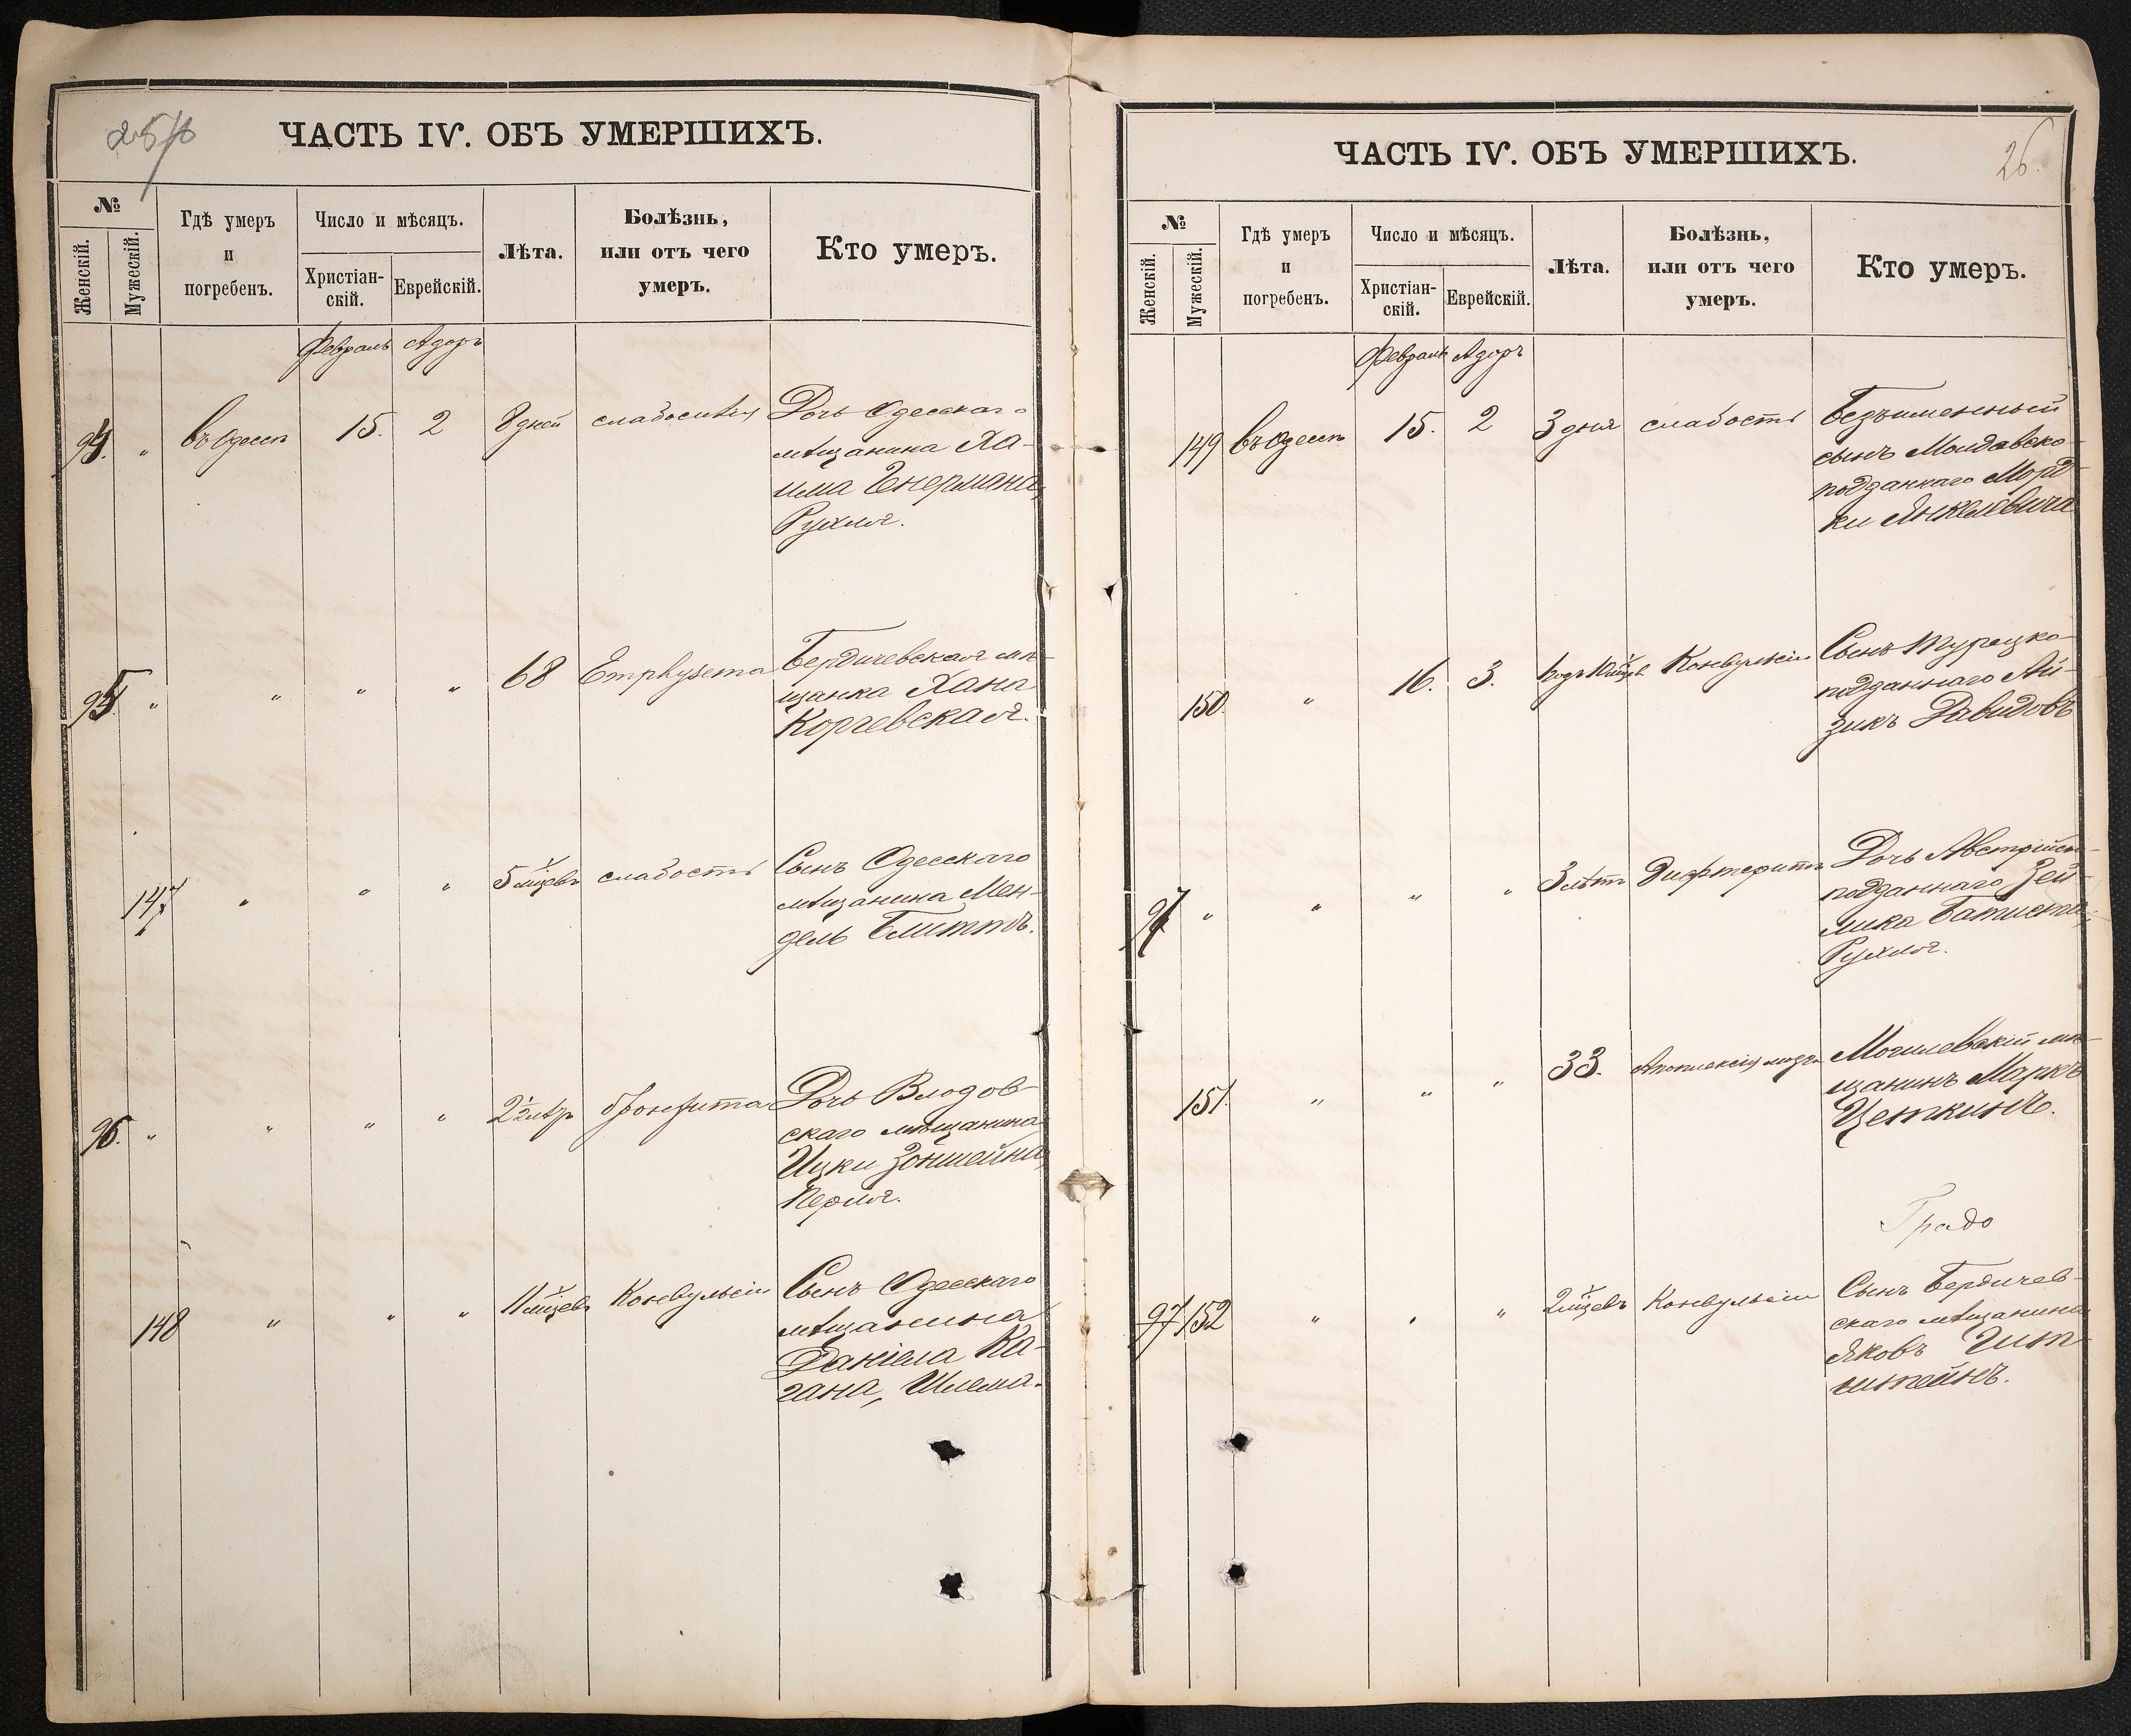 25/б
ЧАСТЬ IV. ОБЪ УМЕРШИХЪ.
№
Женскій.
Мужескій.
Гдѣ умеръ
и
погребенъ.
Число и мѣсяцъ.
Христіан-
скій.
Еврейскій.
Лѣта.
Болѣзнь,
или отъ чего
умеръ.
Кто умеръ.
Февраль Адоръ
94. " въ Одессѣ 15. 2 8 дней слабостію Дочь Одесскаго
мѣщанина Ха-
има Генермана,
Рухля.
95. " " " " 68 Emphysema Бердичевская мѣ-
щанка Хана
Коргевская.
147 " " " 5 мѣцевъ слабости Сынъ Одесскаго
мѣщанина Мен-
дель Блиттъ.
96. " " " " 2½ бронхита Дочь Влодов-
скаго мѣщанина
Ицки Зонштейна,
Перля.
148 " " " 11 мѣцевъ Конвульсіи Сынъ Одесскаго
мѣщанина
Даніела Ка-
гана, Шлема.
26.
ЧАСТЬ IV. ОБЪ УМЕРШИХЪ.
№
Женскій.
Мужескій.
Гдѣ умеръ
и
погребенъ.
Число и мѣсяцъ.
Христіан-
скій.
Еврейскій.
Лѣта.
Болѣзнь,
или отъ чего
умеръ.
Кто умеръ.
Февраль Адоръ
149 въ Одессѣ 15. 2 3 дня слабости Безъименный
сынъ Молдавско-
подданнаго Морд-
ки Янкелевича
150. " 16. 3. Конвульсіи Сынъ Турецко-
подданнаго Ай-
зикъ Давидовъ
97 " " " " 3 лѣтъ Дифтеритъ Дочь Австрійско-
подданнаго Зей-
лика
Рухля.
151. " " " 33. Апоплексія мозга Могилевскій мѣ-
щанинъ Маркъ
Цеткинъ.
97 152 " " " 2 мѣцевъ Конвульсіи Сынъ Бердичев-
скаго мѣщанина
Яковъ Гит-
штейнъ.